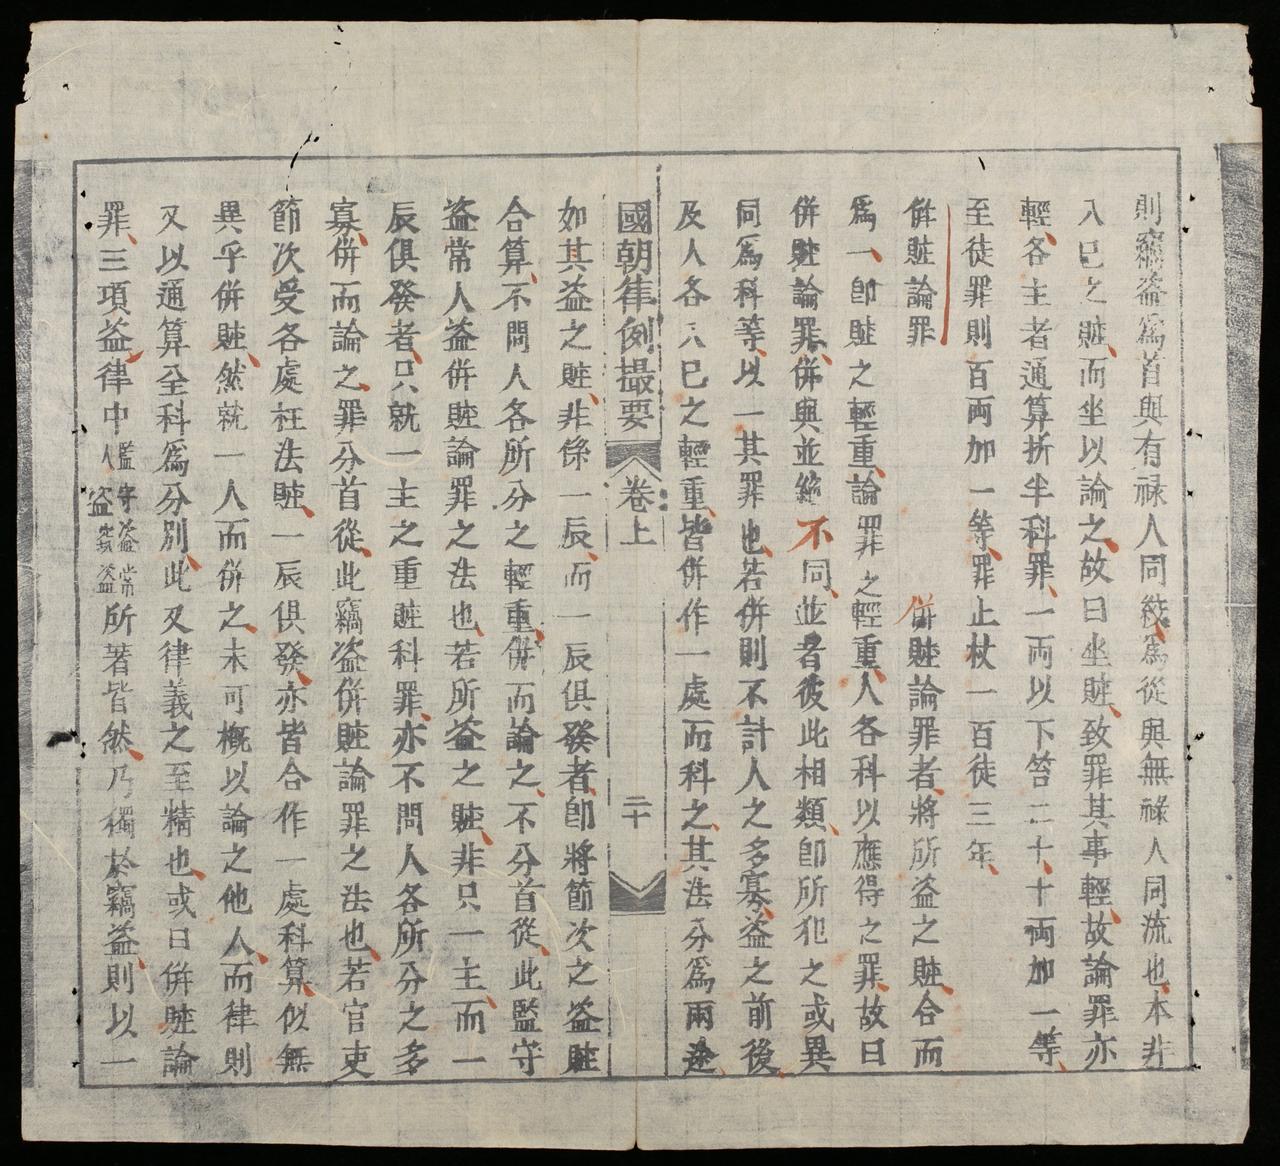 則竊盗爲首與有禄人同科爲從與無禄人同流也本非
入已之賍而坐以論之故曰坐賍致罪其事輕故論罪亦
輕各主者通算折半科罪一両以下笞二十十両加一等
至徒罪則百両加一等罪止杖一百徒三年
併賍論罪　併賍論罪者將所盗之賍合而
爲一卽賍之輕重論罪之輕重人各科以應得之罪故曰
併賍論罪併與並絕不同並者彼此相類卽所犯之或異
同爲科等以一其罪也若併則不計人之多寡盗之前後
及人各入已之輕重皆併作一處而科之其法分爲兩途
國朝律例撮要　卷上　二十
如其盗之賍非係一辰而一辰俱發者卽將節次之盗賍
合算不問人各所分之輕重併而論之不分首從此監守
盗常人盗併賍論罪之法也若所盗之賍非只一主而一
辰俱發者只就一主之重賍科罪亦不問人各所分之多
寡併而論之罪分首從此竊盗併賍論罪之法也若官吏
節次受各處枉法賍一辰俱發亦皆合作一處科算似無
異乎併賍然就一人而併之未可槪以論之他人而律則
又以通算全科爲分別此又律義之至精也或曰併賍論
罪三項盗律中監守盗常人盗竊盗所著皆然乃獨於竊盗則以一